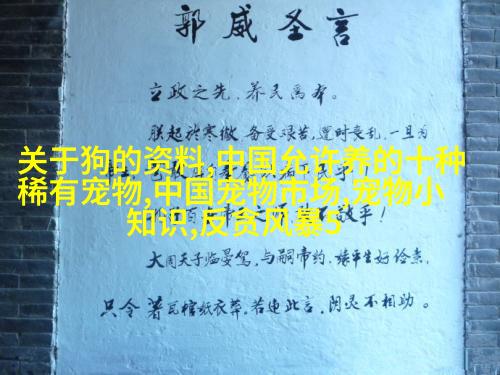 郭威圣言
立政之先,养民为本。
朕起於寒微,备受艰苦,遭时丧乱,一旦为
关于狗的资料,中国允许养的十种
稀有宠物,中国宠物市场,宠物小
知识,反贪风暴5
大周天子临晏驾,与嗣帝约,缘平生好俭素,
只令著瓦棺纸衣葬。若违此言,阴灵不相助。